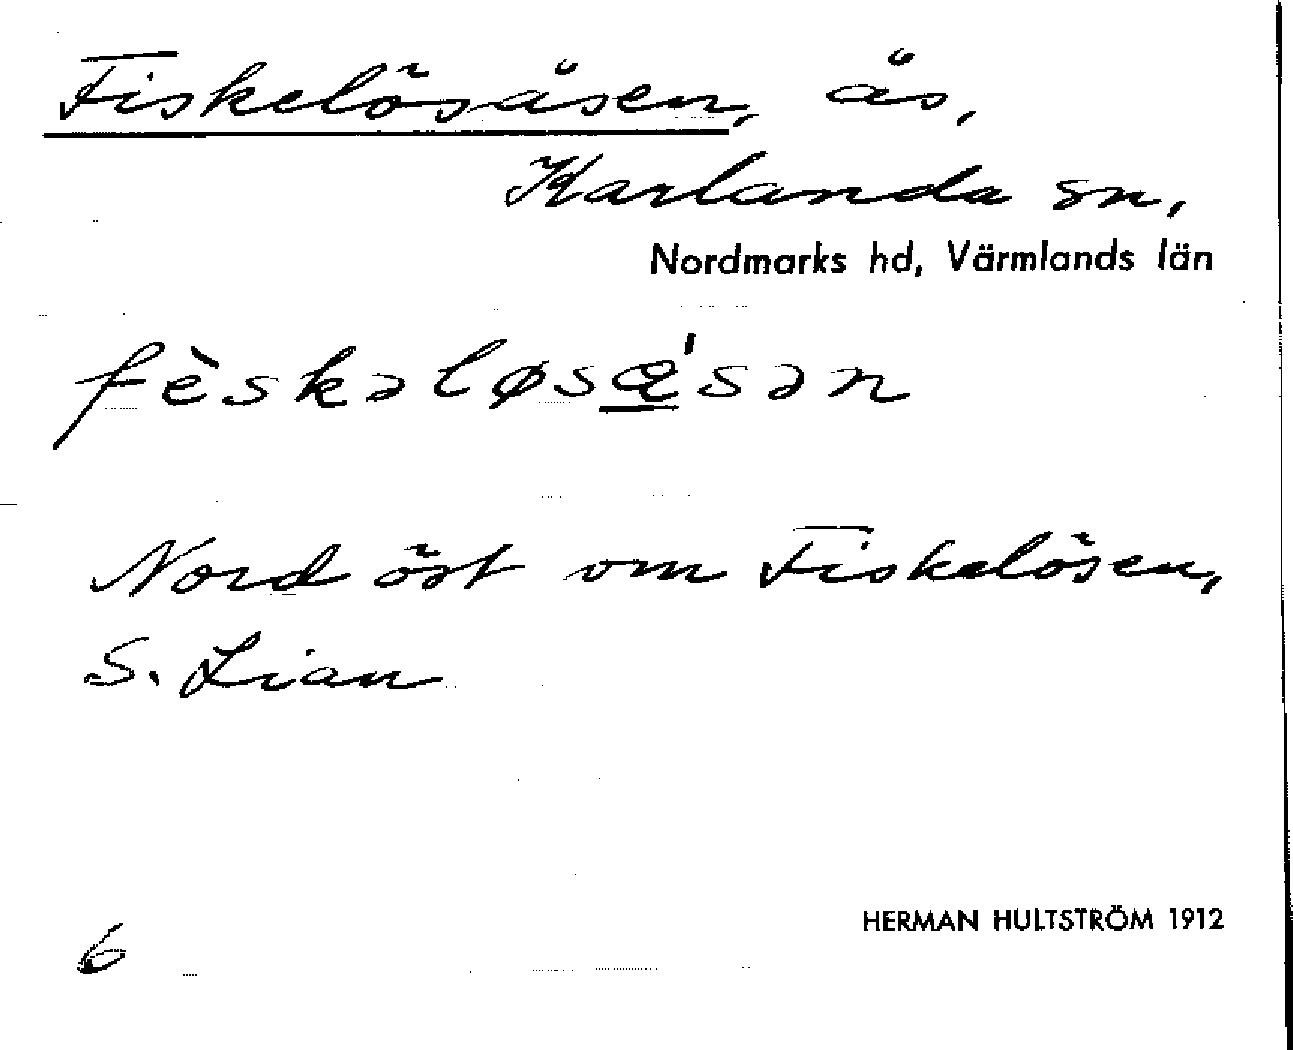 Fiskelösåsen, ås,
Karlanda sn,
Nordmarks hd, Värmlands län
fèskəløsǻsən
Nordöst om Fiskelösen,
S. Lian
HERMAN HULTSTRÖM 1912
6